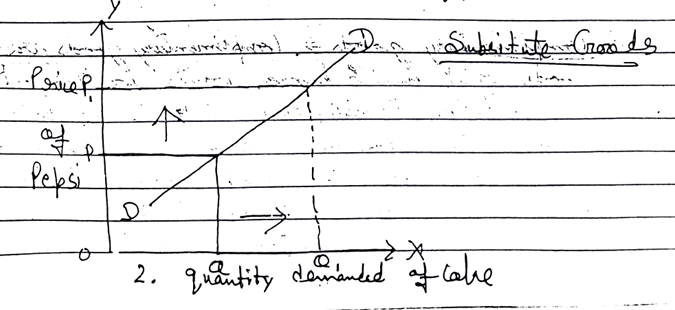 Y
D
Subsitute Goods
Price P1
of P
Pepsi
D
O
Q Q X
2. quantity demanded of Coke